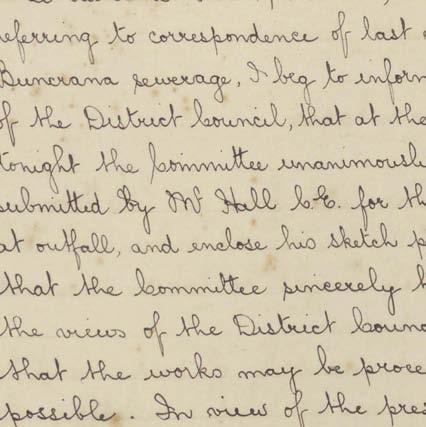 referring to correspondence of last
Buncrana sewerage, I beg to inform
of the District Council, that at the
tonight the Committee unanimously
submitted by Mr Hall C.E. for th
at outfall, and enclose his sketch p
that the Committee sincerely h
the views of the District Counc
that the works may be procee
possible. In view of the pres